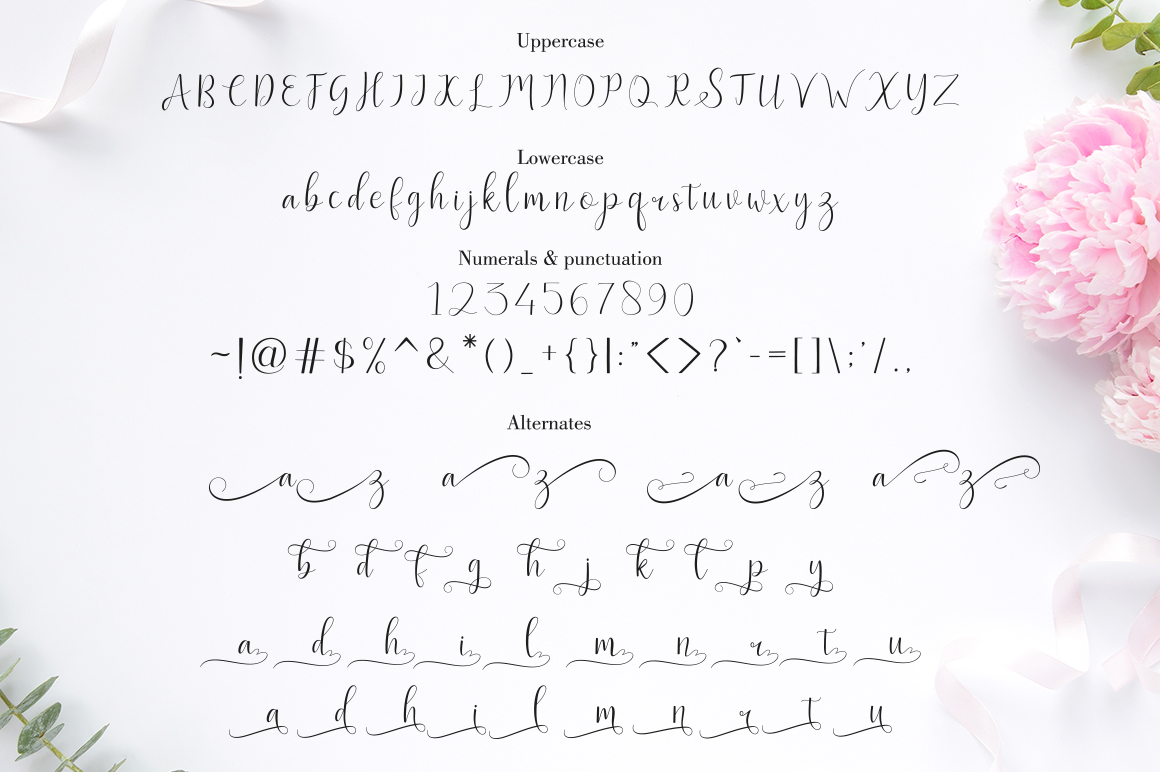 Uppercase
A B C D E F G H I J K L M N O P Q R S T U V W X Y Z
Lowercase
a b c d e f g h i j k l m n o p q r s t u v w x y z
Numerals & punctuation
1 2 3 4 5 6 7 8 9 0
~ ! @ # $ % ^ & * ( ) _ + { } | : " < > ? ` - = [ ] \ ; ' / . ,
Alternates
a z a z a z a z
b d f g h j k t p y
a d h i l m n r t u
a d h i l m n r t u